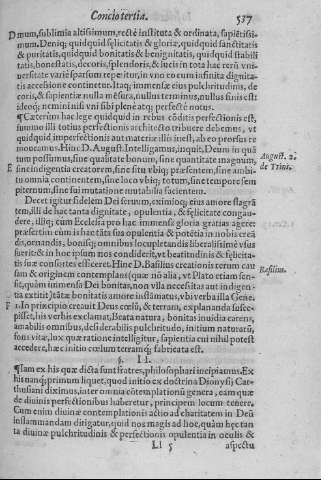 Concio tertia. 537
D mum, sublimia altissimum, rectè instituta & ordinata, sapiẽtissi-
mum. Deniq; quidquid fælicitatis & gloriæ, quidquid sanctitatis &
puritatis, quidquid bonitatis & benignitatis, quidquid stabili
tatis, honestatis, decoris, splendoris, & lucis in tota hac rerũ vni-
uersitate variè sparsum reperitur, in vno eo cum infinita dignita-
tis accessione continetur. Itaq; immensæ eius pulchritudinis, de
coris, & sapientiæ nulla mẽsura, nullus terminus, nullus finis est:
ideoq; nemini nisi sibi plenè atq; perfectè notus.
¶ Cæterum hac lege quidquid in rebus cõditis perfectionis est,
summo illi totius perfectionis architecto tribuere debemus, vt
quidquid imperfectionis aut materiæ illis inest, ab eo prorsus re
moueamus. Hinc D. August. Intelligamus, inquit, Deum in quã
tum possumus, sine qualitate bonum, sine quantitate magnum,
E sine indigentia creatorem, sine situ vbiq; præsentem, sine ambi-
tu omnia continentem, sine loco vbiq; totum, sine tempore sem
piternum, sine sui mutatione mutabilia facientem.
August. 2.
de Trini.
Decet igitur fidelem Dei seruum, eximioq; eius amore flagrã
tem, illi de hac tanta dignitate, opulentia, & fælicitate congau-
dere, illiq; cum Ecclesia pro hac immensa gloria gratias agere:
præsertim cum is hac tãta sua opulentia & potẽtia in nobis creã
dis, ornandis, bonisq; omnibus locupletandis liberalissimè vsus
fuerit: & in hoc ipsum nos condiderit, vt beatitudinis & fælicita-
tis suæ consortes efficeret. Hinc D. Basilius creationis rerum cau
sam & originem contemplans (quæ nõ alia, vt Plato etiam sen-
sit, quàm immensa Dei bonitas, non vlla necessitas aut indigen-
tia extitit) tãtæ bonitatis amore inflãmatus, vbi verba illa Gene.
Basilius.
F 1. In principio creauit Deus cœlũ, & terram, explananda suscę-
pisset, his verbis exclamat, Beata natura, bonitas inuidia carens,
amabilis omnibus, desiderabilis pulchritudo, initium naturarũ,
fons vitæ, lux quæ ratione intelligitur, sapientia cui nihil potest
accedere, hæc initio cœlum terramq; fabricata est.
§. II.
¶ Iam ex his quæ dicta sunt fratres, philosophari incipiamus. Ex
his nanq; primum liquet, quod initio ex doctrina Dionysij Car-
thusani diximus, inter omnia cõtemplationũ genera, eam quæ
de diuinis perfectionibus haberetur, principem locum tenere.
Cum enim diuinæ contemplationis actio ad charitatem in Deũ
inflammandam dirigatur, quid nos magis ad hoc, quàm hęc tan
ta diuinæ pulchritudinis & perfectionis opulentia in oculis &
Ll 5 aspectu